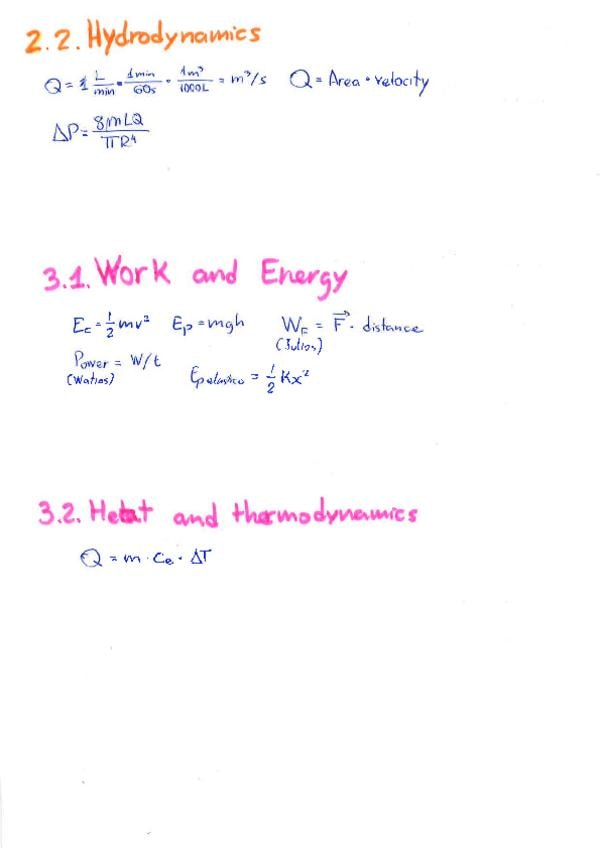 2.2. Hydrodynamics
Q = 1 L/min · 1min/60s · 1m³/1000L = m³/s   Q = Area · velocity
ΔP = 8μLQ/πR⁴
3.1. Work and Energy
Ec = 1/2 mv²   Ep = mgh   WF = F⃗ · distance
(Julios)
Power = W/t
(Watios)   Ep elastico = 1/2 Kx²
3.2. Heat and thermodynamics
Q = m · Ce · ΔT